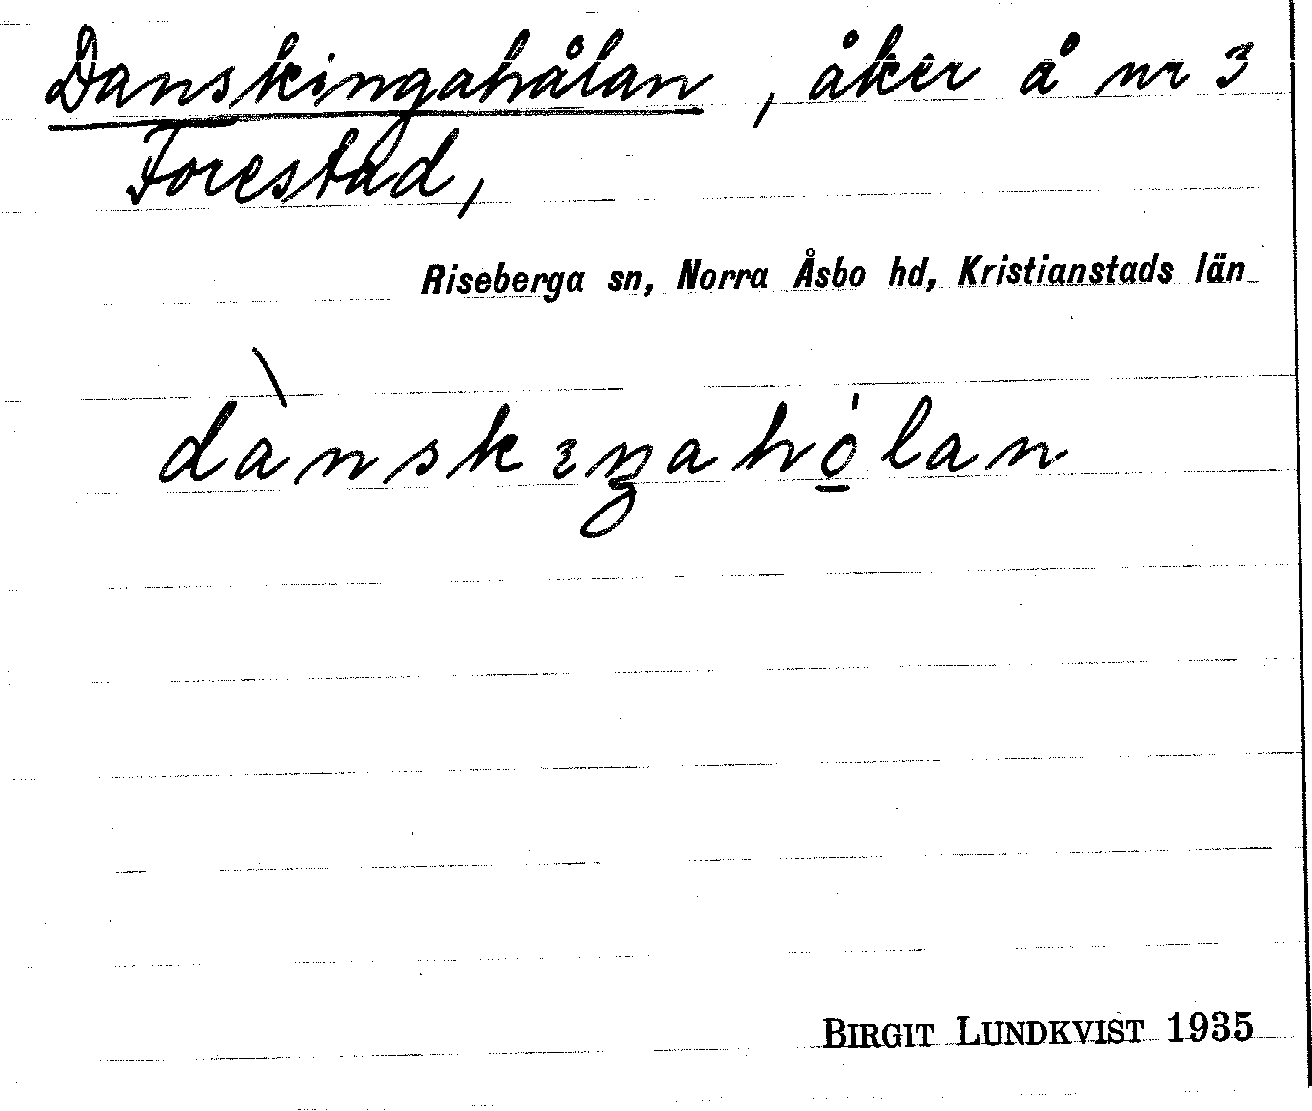 Danskingahålan, åker å nr 3
Forestad,
Riseberga sn, Norra Åsbo hd, Kristianstads län
dànskıŋaho̲̍lan
BIRGIT LUNDKVIST 1935